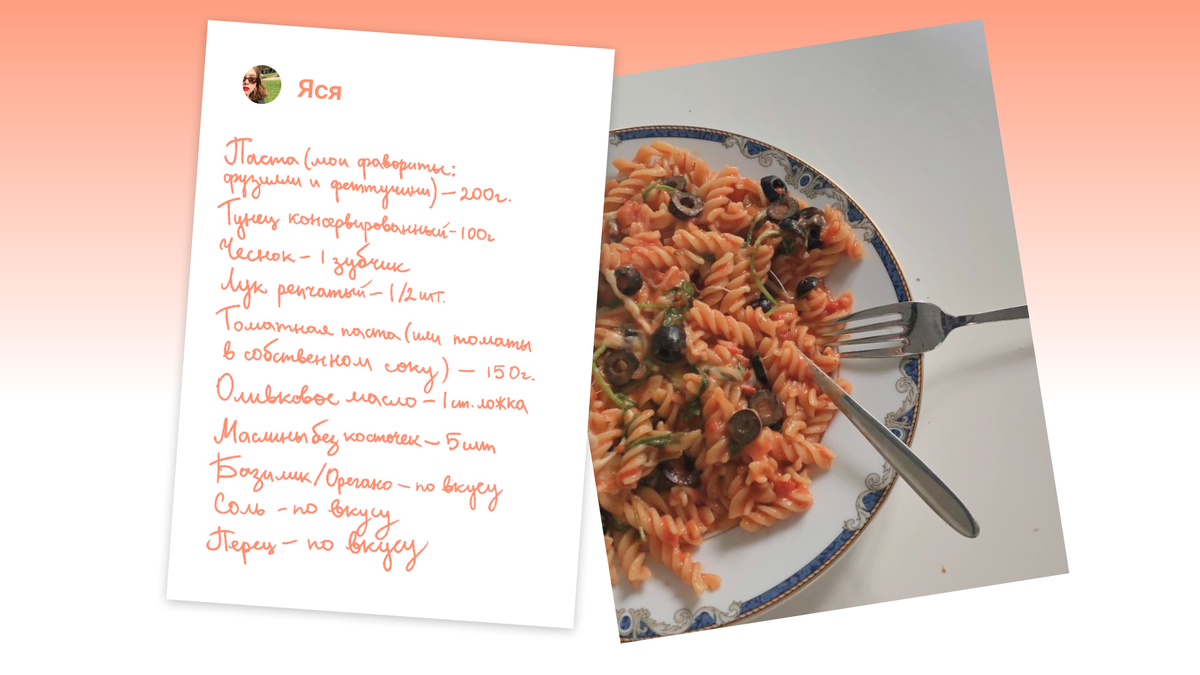 Яся
Паста (мои фавориты:
фузилли и феттучини) – 200г.
Тунец консервированный – 100г
Чеснок – 1 зубчик
Лук репчатый – 1/2 шт.
Томатная паста (или томаты
в собственном соку) – 150г.
Оливковое масло – 1 ст. ложка
Маслины без косточек – 5 шт
Базилик/Орегано – по вкусу
Соль – по вкусу
Перец – по вкусу